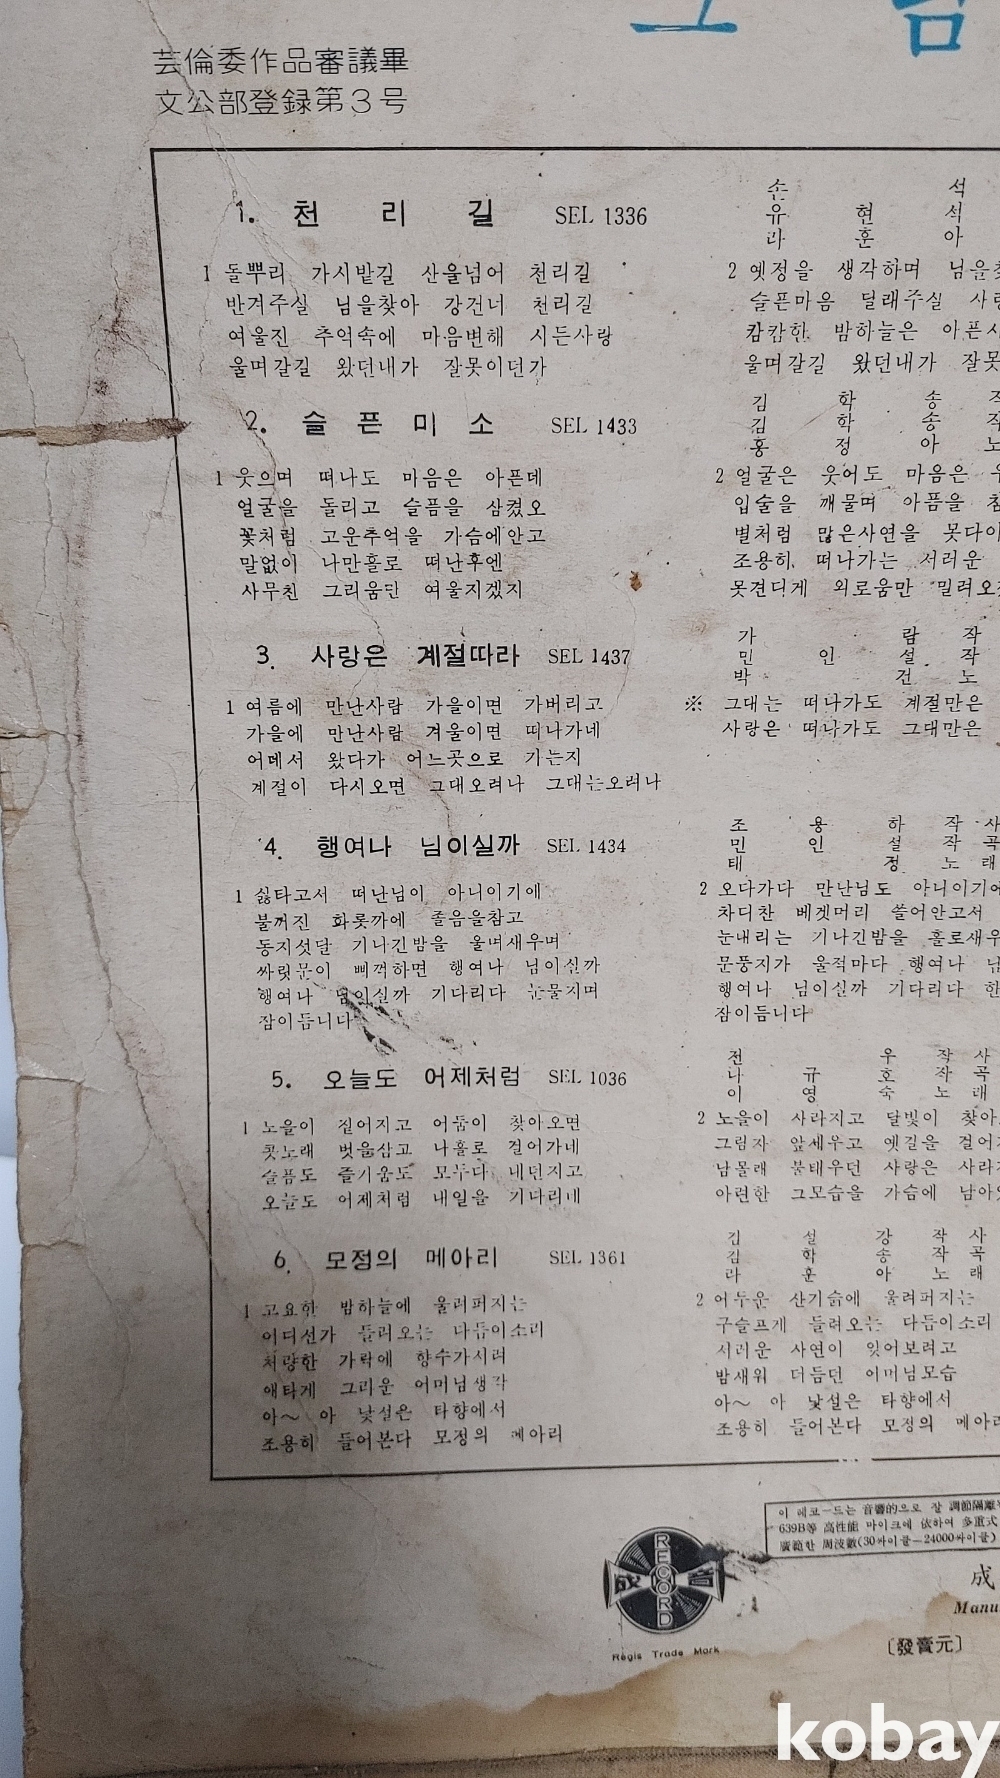 芸倫委作品審議畢
文公部登録第3号
1. 천 리 길 SEL 1336
손 석
유 현 석
라 훈 아
1 돌뿌리 가시밭길 산을넘어 천리길
반겨주실 님을찾아 강건너 천리길
여울진 추억속에 마음변해 시든사랑
울며갈길 왔던내가 잘못이던가
2 옛정을 생각하며 님을찾
슬픈마음 달래주실 사랑
캄캄한 밤하늘은 아픈사
울며갈길 왔던내가 잘못
2. 슬 픈 미 소 SEL 1433
김 학 송 작
김 학 송 작
홍 정 아 노
1 웃으며 떠나도 마음은 아픈데
얼굴을 돌리고 슬픔을 삼켰오
꽃처럼 고운추억을 가슴에안고
말없이 나만홀로 떠난후엔
사무친 그리움만 여울지겠지
2 얼굴은 웃어도 마음은
입술을 깨물며 아픔을 참
별처럼 많은사연을 못다이
조용히 떠나가는 서러운
못견디게 외로움만 밀려오
3. 사랑은 계절따라 SEL 1437
가 람 작
민 인 설 작
박 건 노
1 여름에 만난사람 가을이면 가버리고
가을에 만난사람 겨울이면 떠나가네
어데서 왔다가 어느곳으로 가는지
계절이 다시오면 그대오려나 그대는오려나
※ 그대는 떠나가도 계절만은
사랑은 떠나가도 그대만은
4. 행여나 님이실까 SEL 1434
조 용 하 작 사
민 인 설 작 곡
태 정 노 래
1 싫타고서 떠난님이 아니이기에
불꺼진 화롯까에 졸음을참고
동지섯달 기나긴밤을 울며새우며
싸릿문이 삐꺽하면 행여나 님이실까
행여나 님이실까 기다리다 눈물지며
잠이듭니다
2 오다가다 만난님도 아니이기에
차디찬 베겟머리 쓸어안고서
눈내리는 기나긴밤을 홀로새우
문풍지가 울적마다 행여나 님
행여나 님이실까 기다리다 한
잠이듭니다
5. 오늘도 어제처럼 SEL 1036
전 우 작 사
나 규 호 작 곡
이 영 숙 노 래
1 노을이 짙어지고 어둠이 찾아오면
콧노래 벗을삼고 나홀로 걸어가네
슬픔도 즐거움도 모두다 내던지고
오늘도 어제처럼 내일을 기다리네
2 노을이 사라지고 달빛이 찾아
그림자 앞세우고 옛길을 걸어
남몰래 불태우던 사랑은 사라
아련한 그모습을 가슴에 남아
6. 모정의 메아리 SEL 1361
김 설 강 작 사
김 학 송 작 곡
라 훈 아 노 래
1 고요한 밤하늘에 울려퍼지는
어디선가 들려오는 다듬이소리
처량한 가락에 향수가시려
애타게 그리운 어머님생각
아～ 아 낯설은 타향에서
조용히 들어본다 모정의 메아리
2 어두운 산기슭에 울려퍼지는
구슬프게 들려오는 다듬이소리
서러운 사연이 잊어보려고
밤새워 더듬던 어머님모습
아～ 아 낯설은 타향에서
조용히 들어본다 모정의 메아리
이 레코-드는 音響的으로 잘 調節隔離
639B等 高性能 마이크에 依하여 多重式
廣範한 周波數(30싸이클-24000싸이클)
成 音
RECORD
Regis Trade Mark
成
Manu
〔發賣元〕
kobay